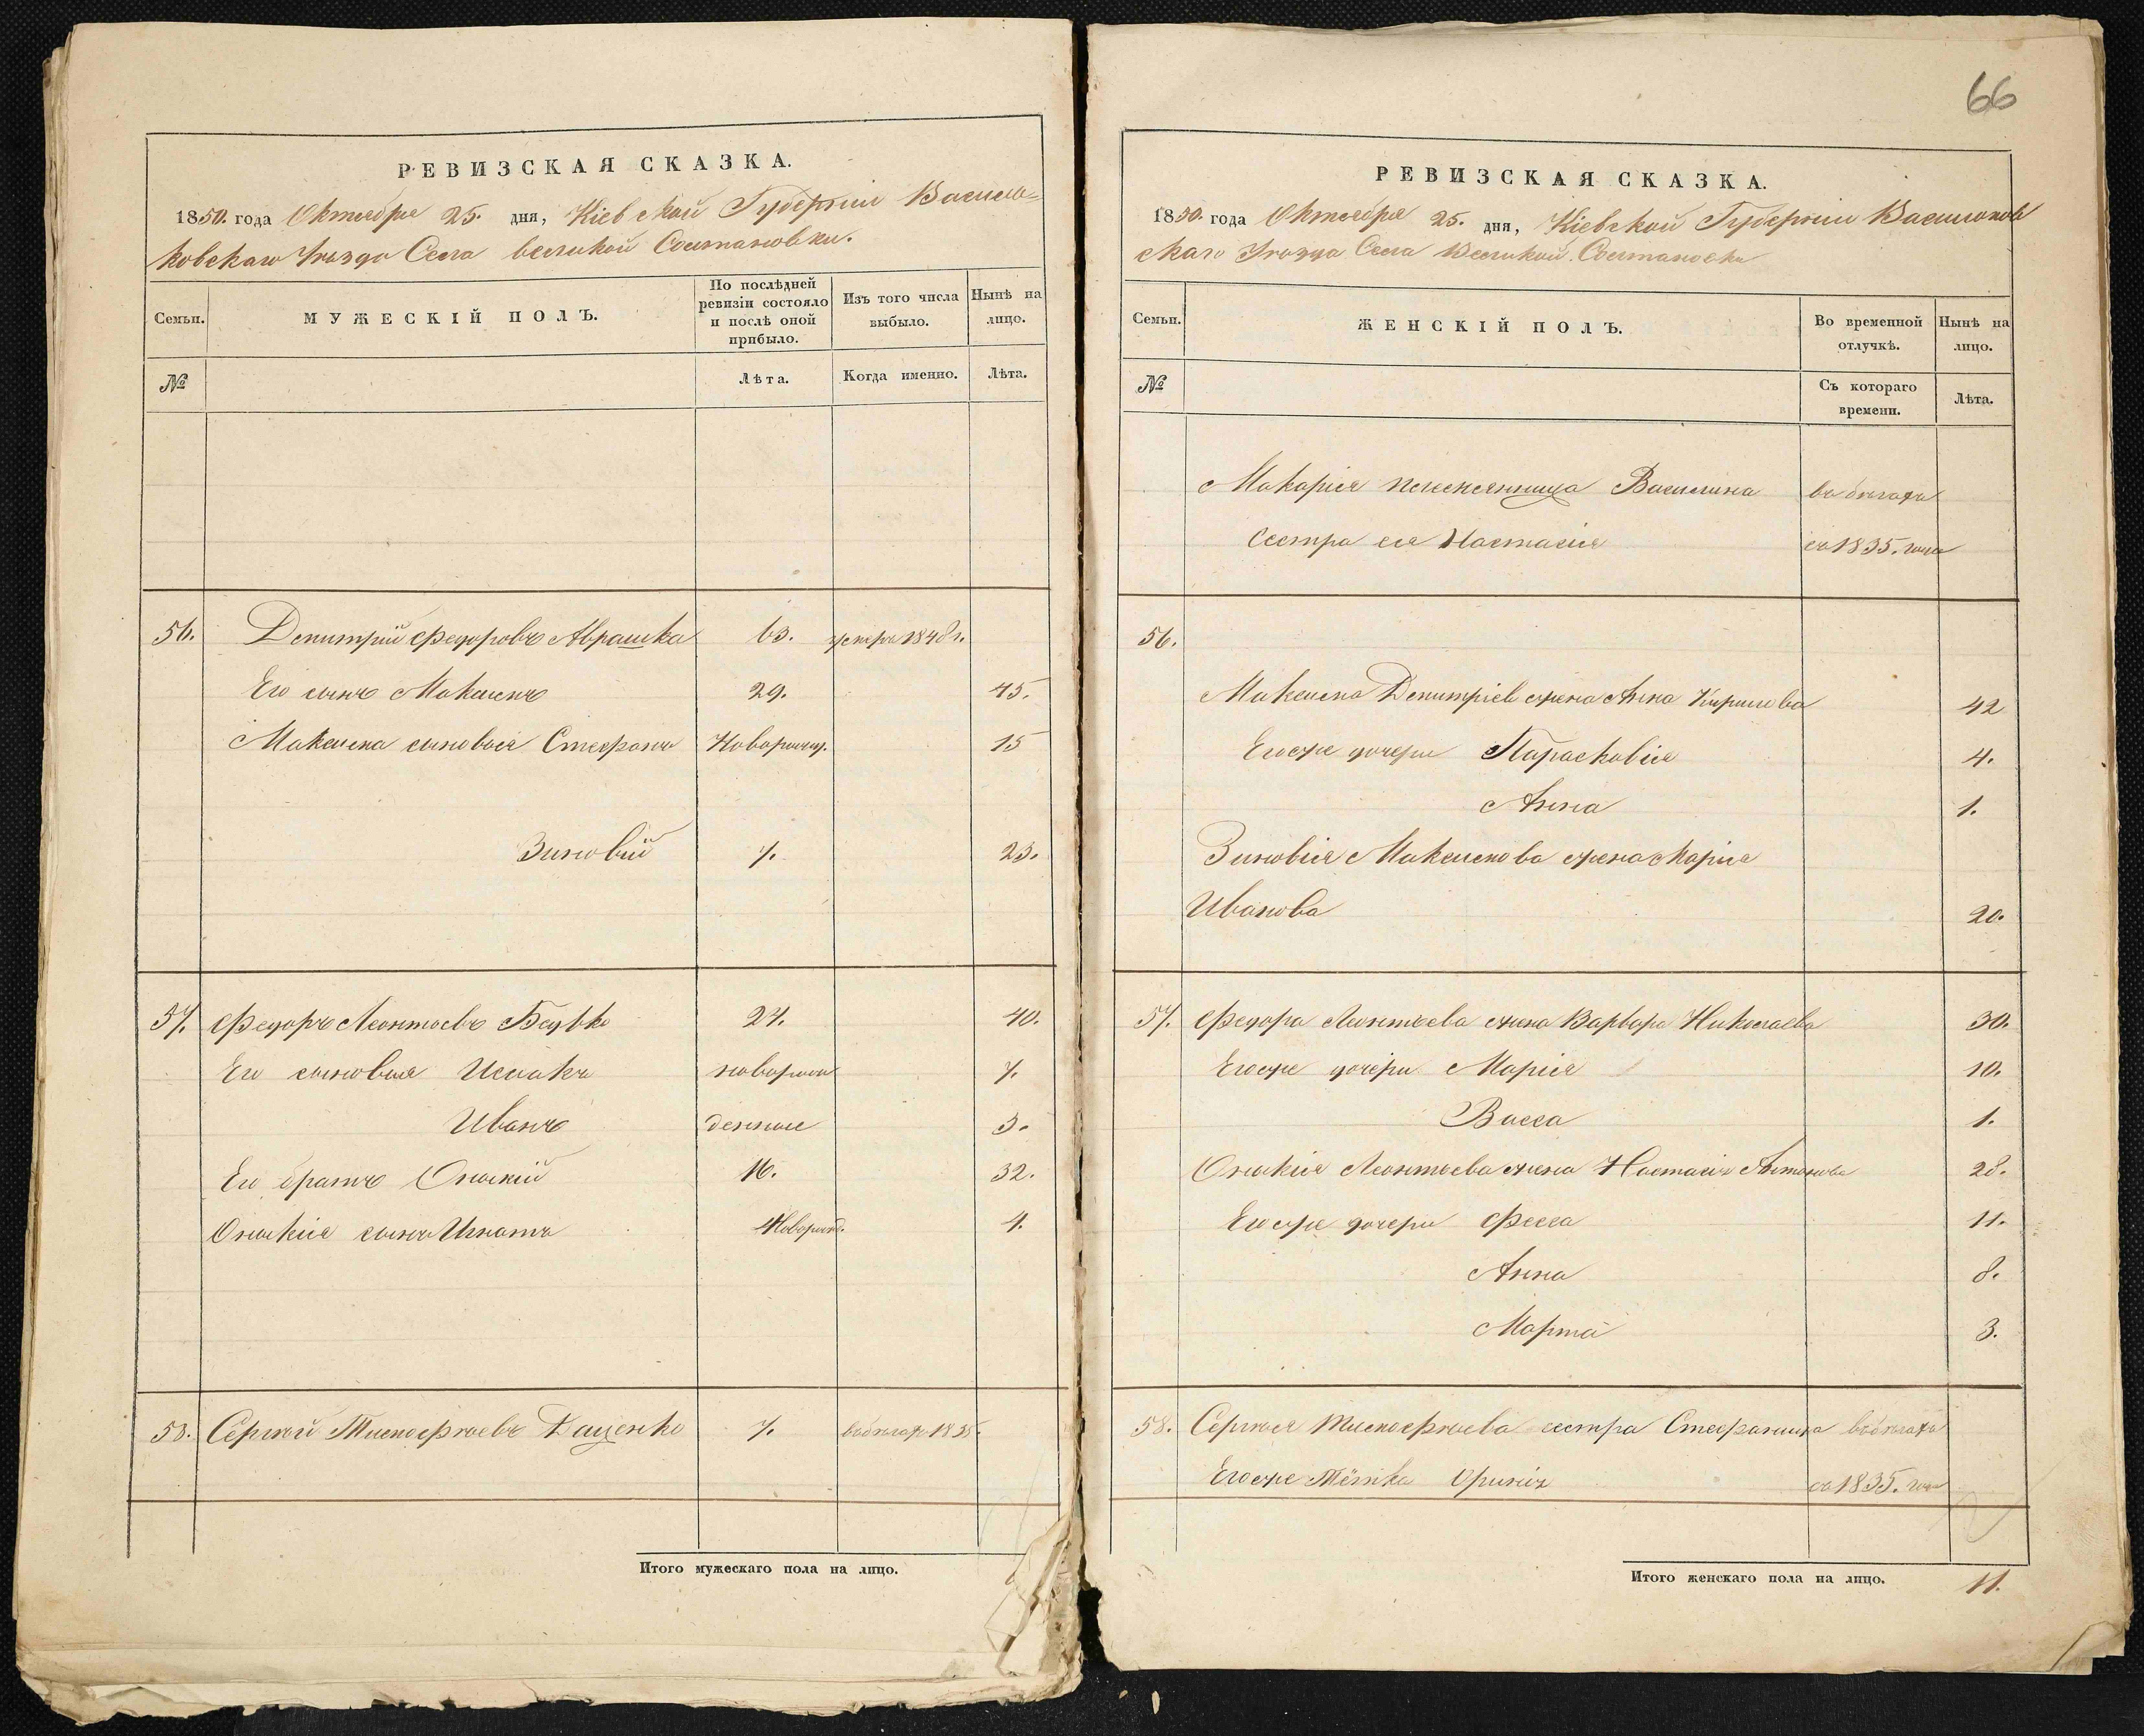 РЕВИЗСКАЯ СКАЗКА.
1850. года Октября 25. дня, Кіевской Губерніи Василь=
ковскаго Уѣзда Села великой Солтановки.
Семьи.
МУЖЕСКІЙ ПОЛЪ.
По послѣдней ревизіи состояло и послѣ оной прибыло.
Изъ того числа выбыло.
Нынѣ на лицо.
№
Лѣта.
Когда именно.
Лѣта.
56. Демитрій Федоровъ Аврашка 63. умеръ 1848 г.
Его сынъ Максимъ 29. 45.
Максима сыновья Стефанъ Новорожд. 15
Зиновій 7. 23.
57. Федоръ Леонтьевъ 24. 40.
Его сыновья Исаакъ новорож 7.
Иванъ денные 3.
Его братъ Онискій 16. 32.
Онискія сынъ Игнатъ Новорожд. 4.
58. Сергѣй Тимофѣевъ Даценко 7. въ бѣгах 1835.
Итого мужескаго пола на лицо.
66
РЕВИЗСКАЯ СКАЗКА.
1850. года Октября 25. дня, Кіевской Губерніи Васильков
скаго Уѣзда Села Великой Солтановки
Семьи.
ЖЕНСКІЙ ПОЛЪ.
Во временной отлучкѣ.
Нынѣ на лицо.
№
Съ котораго времени.
Лѣта.
Макарія племянница Василина въ бѣгахъ
Сестра ея Настасія съ 1835. года
56.
Максима Демитріев жена Анна Кирилова 42
Егоже дочери Парасковія 4.
Анна 1.
Зиновія Максимова жена Марія
Иванова 20.
57. Федора Леонтьева жена Варвара Николаева 30.
Егоже дочери Марія 10.
Васса 1.
Онискія Леонтьева жена Настасія Антонова 28.
Егоже дочери Фесса 11.
Анна 8.
Марта 3.
58. Сергѣя Тимофѣева сестра Стефанида въ бѣгахъ
Егоже Тётка Оринія съ 1835. года
Итого женскаго пола на лицо. 11.